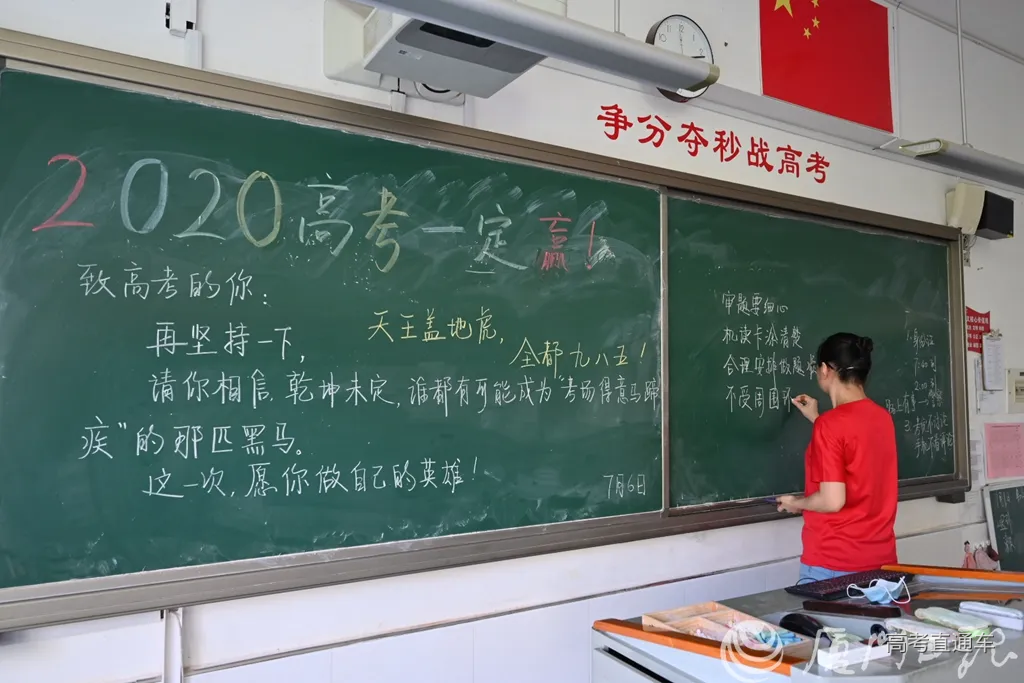 争分夺秒战高考
2020高考一定赢!
致高考的你:
再坚持一下,
天王盖地虎,
全都九八五!
请你相信,乾坤未定,谁都有可能成为“考场得意马蹄
疾”的那匹黑马。
这一次,愿你做自己的英雄!
7月6日
审题要细心
机读卡涂清楚
合理安排做题
不受周围
1.身份证
高考直通车